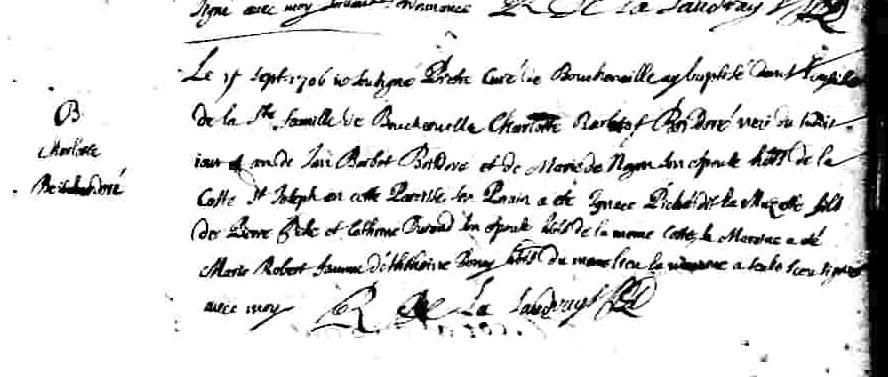 signé avec moy suivant l'ordonnance R De La Saudrays ptre
Le 15 sept 1706 je soubsigné Prestre Curé de Boucherville ay baptisé dans l'eglise
B
de la Ste famille de Boucherville Charlotte Barbot Boisdoré née du susdit
Charlotte
jour et an de Jan Barbot Boisdoré et de Marie de Noyon son epouse hbts de la
Boisdoré
Coste St Joseph en cette Paroisse son Parain a eté Ignace Piché dit la Musette fils
de Pierre Piché et Catherine Durand son epouse hbts de la meme Coste, la Maraine a eté
Marie Robert femme d'Anthoine hbts du meme lieu la maraine a seule sceu signer
avec moy R De La Saudrays ptre